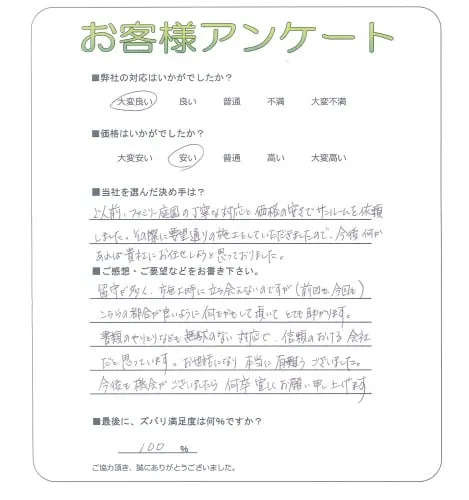 お客様アンケート
■弊社の対応はいかがでしたか？
大変良い 良い 普通 不満 大変不満
■価格はいかがでしたか？
大変安い 安い 普通 高い 大変高い
■当社を選んだ決め手は？
以前、ファミリー庭園の丁寧な対応と価格の安さでサンルームを依頼
しました。その際に要望通りの施工をしていただきましたので、今後何か
あれば貴社にお任せしようと思っておりました。
■ご感想・ご要望などをお書き下さい。
留守が多く、施工時に立ち会えないのですが(前回も今回も)
こちらの都合が良いように何でもして頂いてとても助かります。
書類のやりとりなども無駄のない対応で、信頼のおける会社
だと思っています。お世話になり本当に有難うございました。
今後も機会がございましたら何卒宜しくお願い申し上げます
■最後に、ズバリ満足度は何%ですか？
100 %
ご協力頂き、誠にありがとうございました。